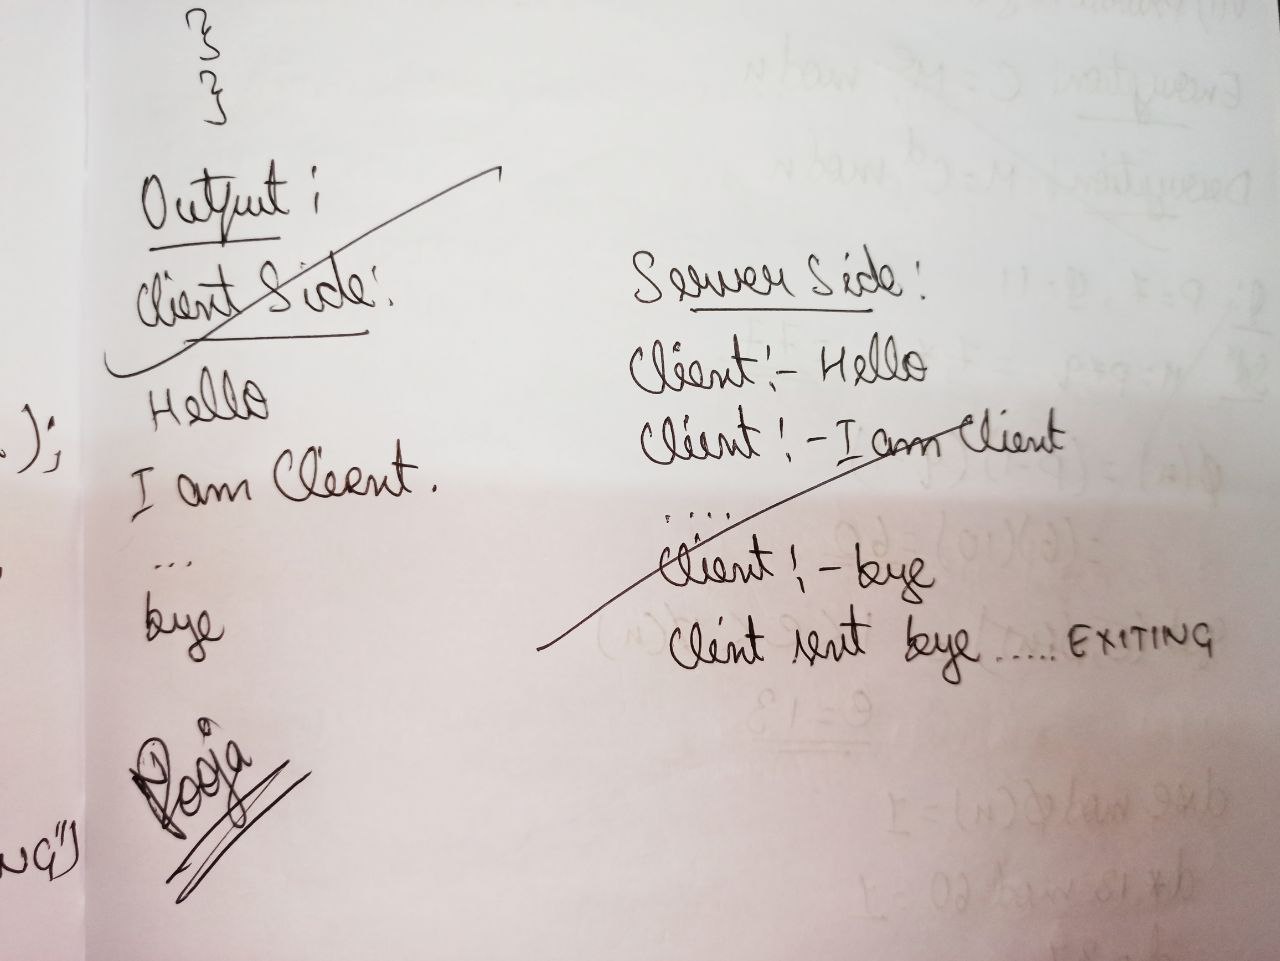 }
}
Output :
Client Side :
Hello
I am Client.
...
bye
Pooja
Server Side :
Client :- Hello
Client :- I am Client
....
Client :- bye
Client sent bye ..... EXITING
);
NG")